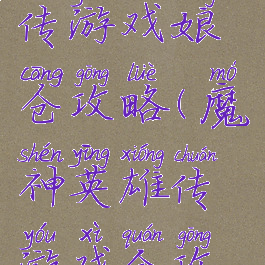 传游戏娘
cāng gōng lüè mó
仓攻略(魔
shén yīng xióng chuán
神英雄传
yóu xì quán gōng
游戏全攻